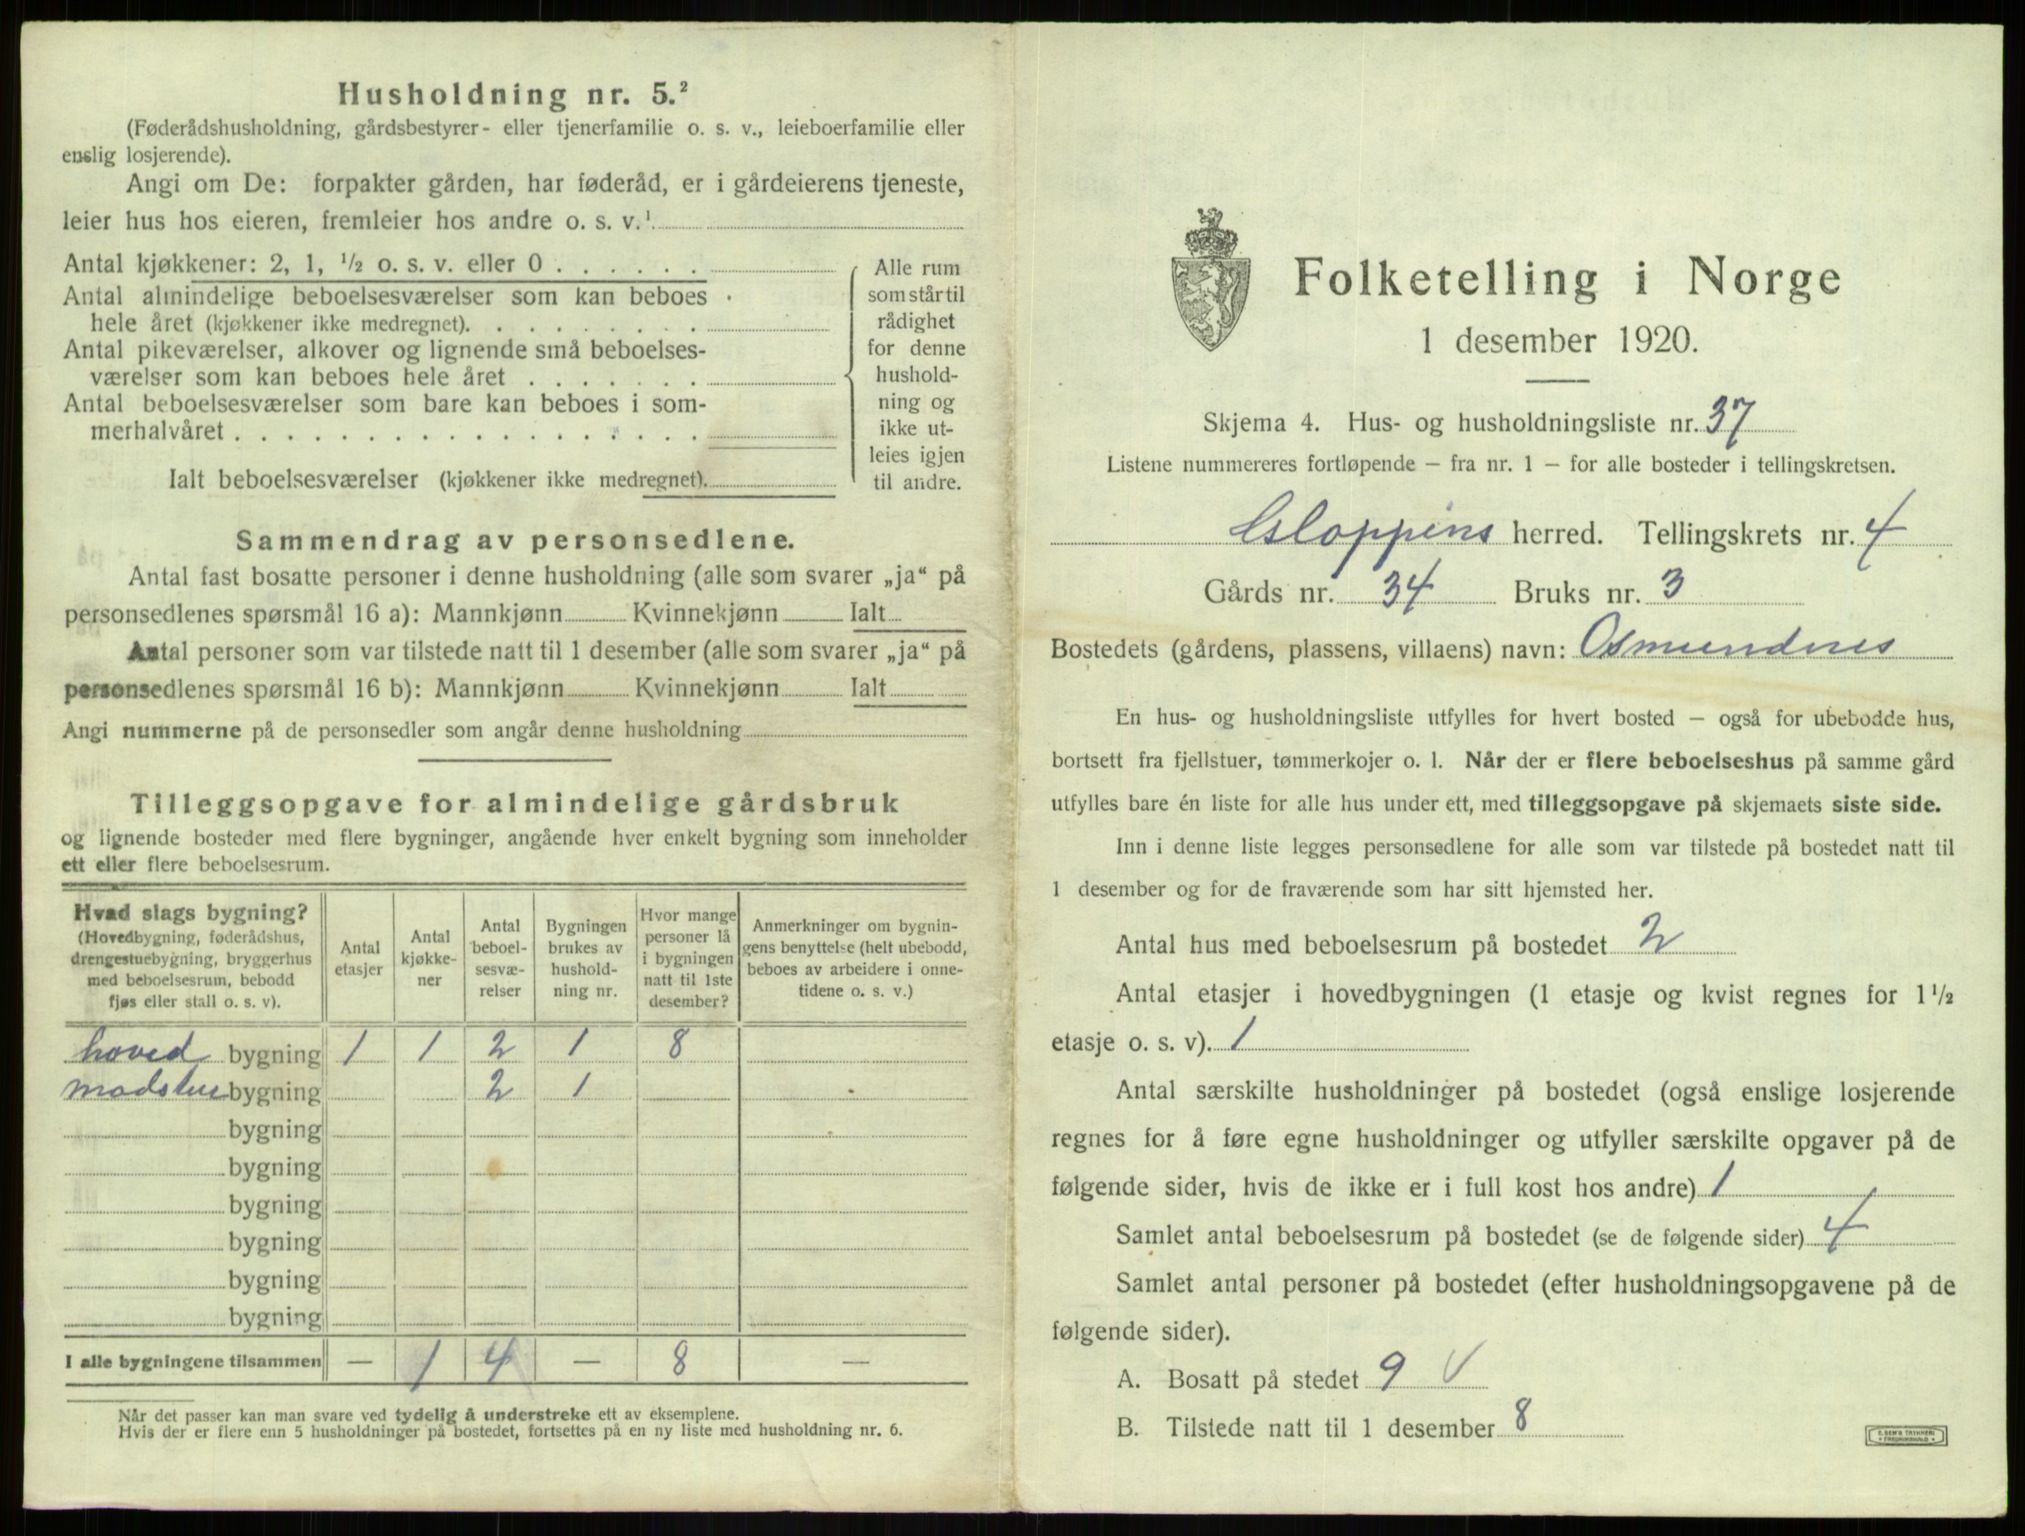 Husholdning nr. 5.²
(Føderådshusholdning, gårdsbestyrer- eller tjenerfamilie o. s. v., leieboerfamilie eller
enslig losjerende).
Angi om De: forpakter gården, har føderåd, er i gårdeierens tjeneste,
leier hus hos eieren, fremleier hos andre o. s. v.¹
Antal kjøkkener: 2, 1, ½ o. s. v. eller 0 . . . . . .
Antal almindelige beboelsesværelser som kan beboes
hele året (kjøkkener ikke medregnet). . . . . . . . .
Antal pikeværelser, alkover og lignende små beboelses-
værelser som kan beboes hele året . . . . . . .
Antal beboelsesværelser som bare kan beboes i som-
merhalvåret . . . . . . . . . . . . . . . . . .
Ialt beboelsesværelser (kjøkkener ikke medregnet).
Alle rum
som står til
rådighet
for denne
hushold-
ning og
ikke ut-
leies igjen
til andre.
Sammendrag av personsedlene.
Antal fast bosatte personer i denne husholdning (alle som svarer „ja“ på
personsedlenes spørsmål 16 a): Mannkjønn Kvinnekjønn Ialt
Antal personer som var tilstede natt til 1 desember (alle som svarer „ja“ på
personsedlenes spørsmål 16 b): Mannkjønn Kvinnekjønn Ialt
Angi nummerne på de personsedler som angår denne husholdning
Tilleggsopgave for almindelige gårdsbruk
og lignende bosteder med flere bygninger, angående hver enkelt bygning som inneholder
ett eller flere beboelsesrum.
Hvad slags bygning?
(Hovedbygning, føderådshus,
drengestuebygning, bryggerhus
med beboelsesrum, bebodd
fjøs eller stall o. s. v).
Antal
etasjer
Antal
kjøkke-
ner
Antal
beboel-
sesvæ-
relser
Bygningen
brukes av
hushold-
ning nr.
Hvor mange
personer lå
i bygningen
natt til 1ste
desember?
Anmerkninger om bygnin-
gens benyttelse (helt ubebodd,
beboes av arbeidere i onne-
tidene o. s. v.)
hoved bygning 1 1 2 1 8
madstue bygning 2 1
bygning
bygning
bygning
bygning
bygning
bygning
I alle bygningene tilsammen — 1 4 — 8 —
Når det passer kan man svare ved tydelig å understreke ett av eksemplene.
Hvis der er flere enn 5 husholdninger på bostedet, fortsettes på en ny liste med husholdning nr. 6.
Folketelling i Norge
1 desember 1920.
Skjema 4. Hus- og husholdningsliste nr. 37
Listene nummereres fortløpende — fra nr. 1 — for alle bosteder i tellingskretsen.
Gloppens herred. Tellingskrets nr. 4
Gårds nr. 34 Bruks nr. 3
Bostedets (gårdens, plassens, villaens) navn: Osmundnes
En hus- og husholdningsliste utfylles for hvert bosted — også for ubebodde hus,
bortsett fra fjellstuer, tømmerkojer o. l. Når der er flere beboelseshus på samme gård
utfylles bare én liste for alle hus under ett, med tilleggsopgave på skjemaets siste side.
Inn i denne liste legges personsedlene for alle som var tilstede på bostedet natt til
1 desember og for de fraværende som har sitt hjemsted her.
Antal hus med beboelsesrum på bostedet 2
Antal etasjer i hovedbygningen (1 etasje og kvist regnes for 1½
etasje o. s. v). 1
Antal særskilte husholdninger på bostedet (også enslige losjerende
regnes for å føre egne husholdninger og utfyller særskilte opgaver på de
følgende sider, hvis de ikke er i full kost hos andre) 1
Samlet antal beboelsesrum på bostedet (se de følgende sider) 4
Samlet antal personer på bostedet (efter husholdningsopgavene på de
følgende sider).
A. Bosatt på stedet 9 V
B. Tilstede natt til 1 desember 8